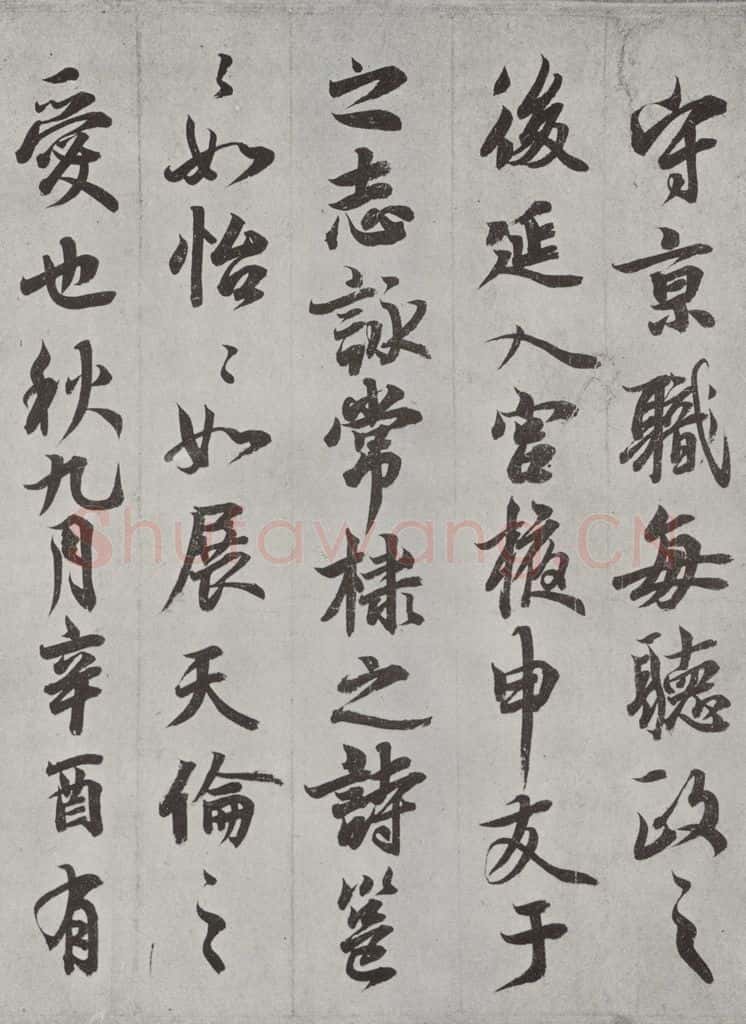 守京職每聽政之
後延入宮掖申友于
之志詠常棣之詩邕
〻如怡〻如展天倫之
愛也秋九月辛酉有
Shufawang.CN